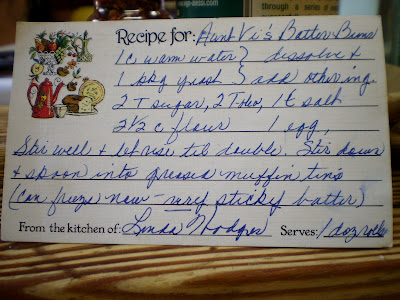 Recipe for: Aunt Vi's Batter Buns
1 c warm water } dissolve &
1 pkg yeast } add other ing
2 T sugar, 2 T oleo, 1 t salt
2 1/2 c flour 1 egg,
Stir well & let rise til double. Stir down
& spoon into greased muffin tins
(can freeze now - very sticky batter)
From the kitchen of: Linda Hodges Serves: 1 doz rolls